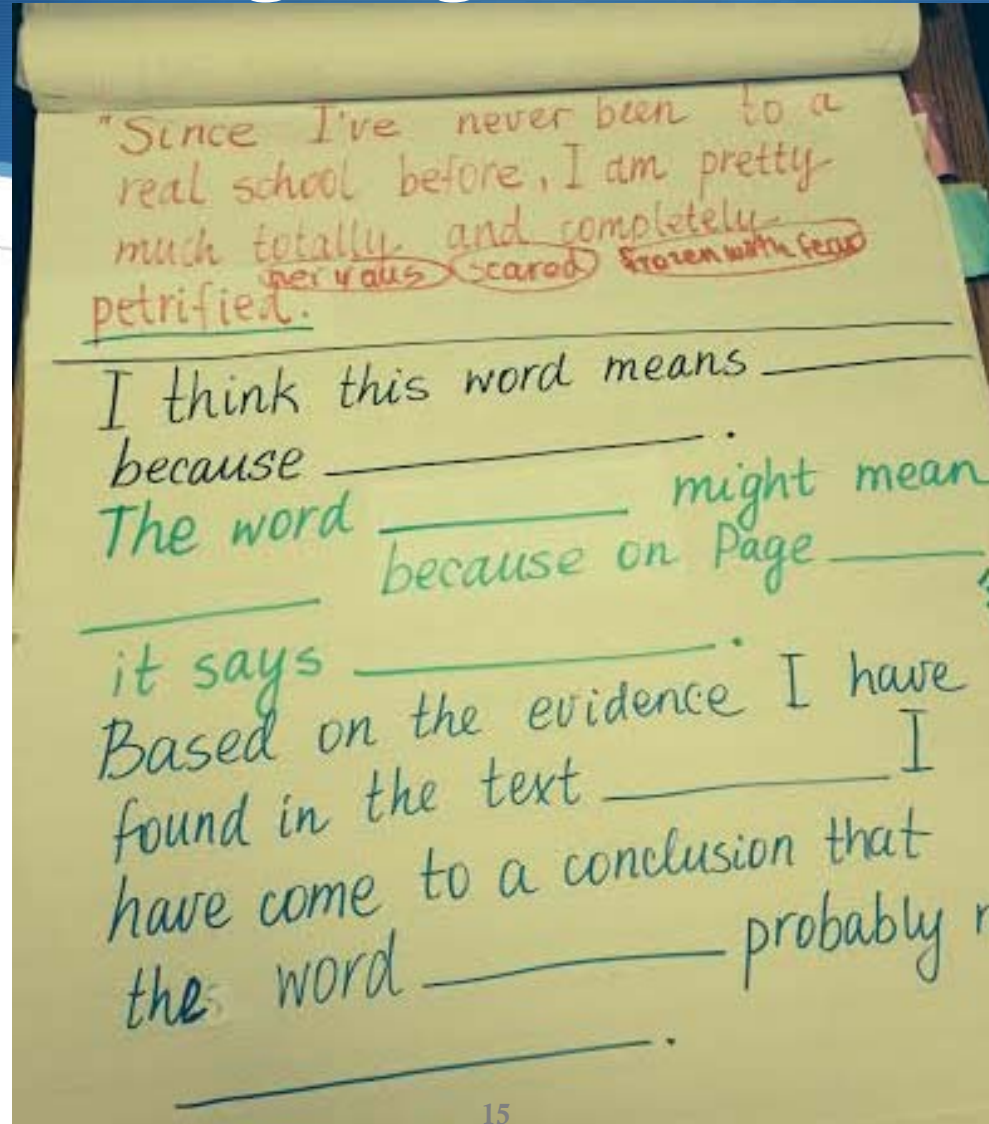 "Since I've never been to a
real school before, I am pretty
much totally and completely
nervous scared frozen with fear
petrified.
I think this word means ______
because ______.
The word ______ might mean
______ because on Page ______
it says ______.
Based on the evidence I have
found in the text ______ I
have come to a conclusion that
the word ______ probably
______.
15